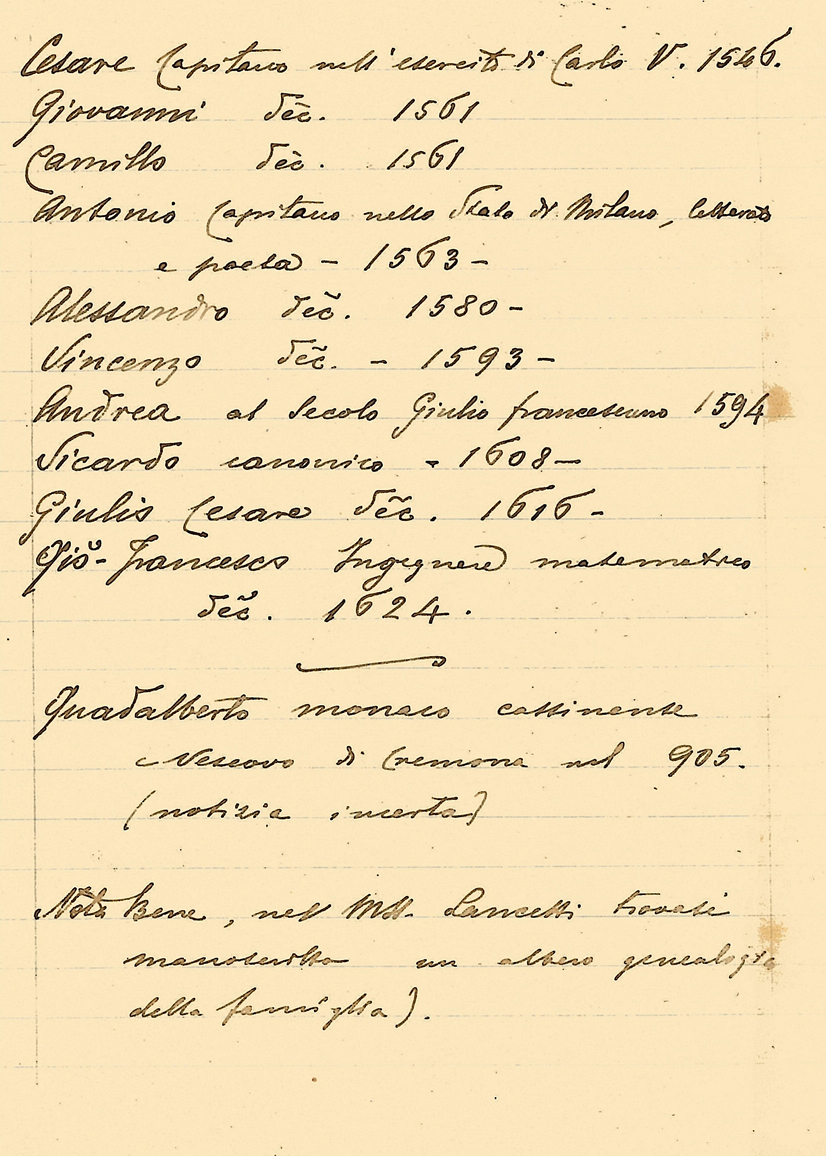 Cesare Capitano nell'esercito di Carlo V. 1546.
Giovanni dec. 1561
Camillo dec. 1561
Antonio Capitano nello Stato di Milano, letterato
e poeta - 1563 -
Alessandro dec. 1580 -
Vincenzo dec. - 1593 -
Andrea al secolo Giulio francescano 1594
Sicardo canonico - 1608 -
Giulio Cesare dec. 1616 -
Gio- Francesco Ingegnere matematico
dec. 1624.
Gualalberto monaco cassinense
Vescovo di Cremona nel 905.
(notizia incerta)
Nota Bene, nel Mss. Lancetti trovasi
manoscritto un albero genealogico
della famiglia).